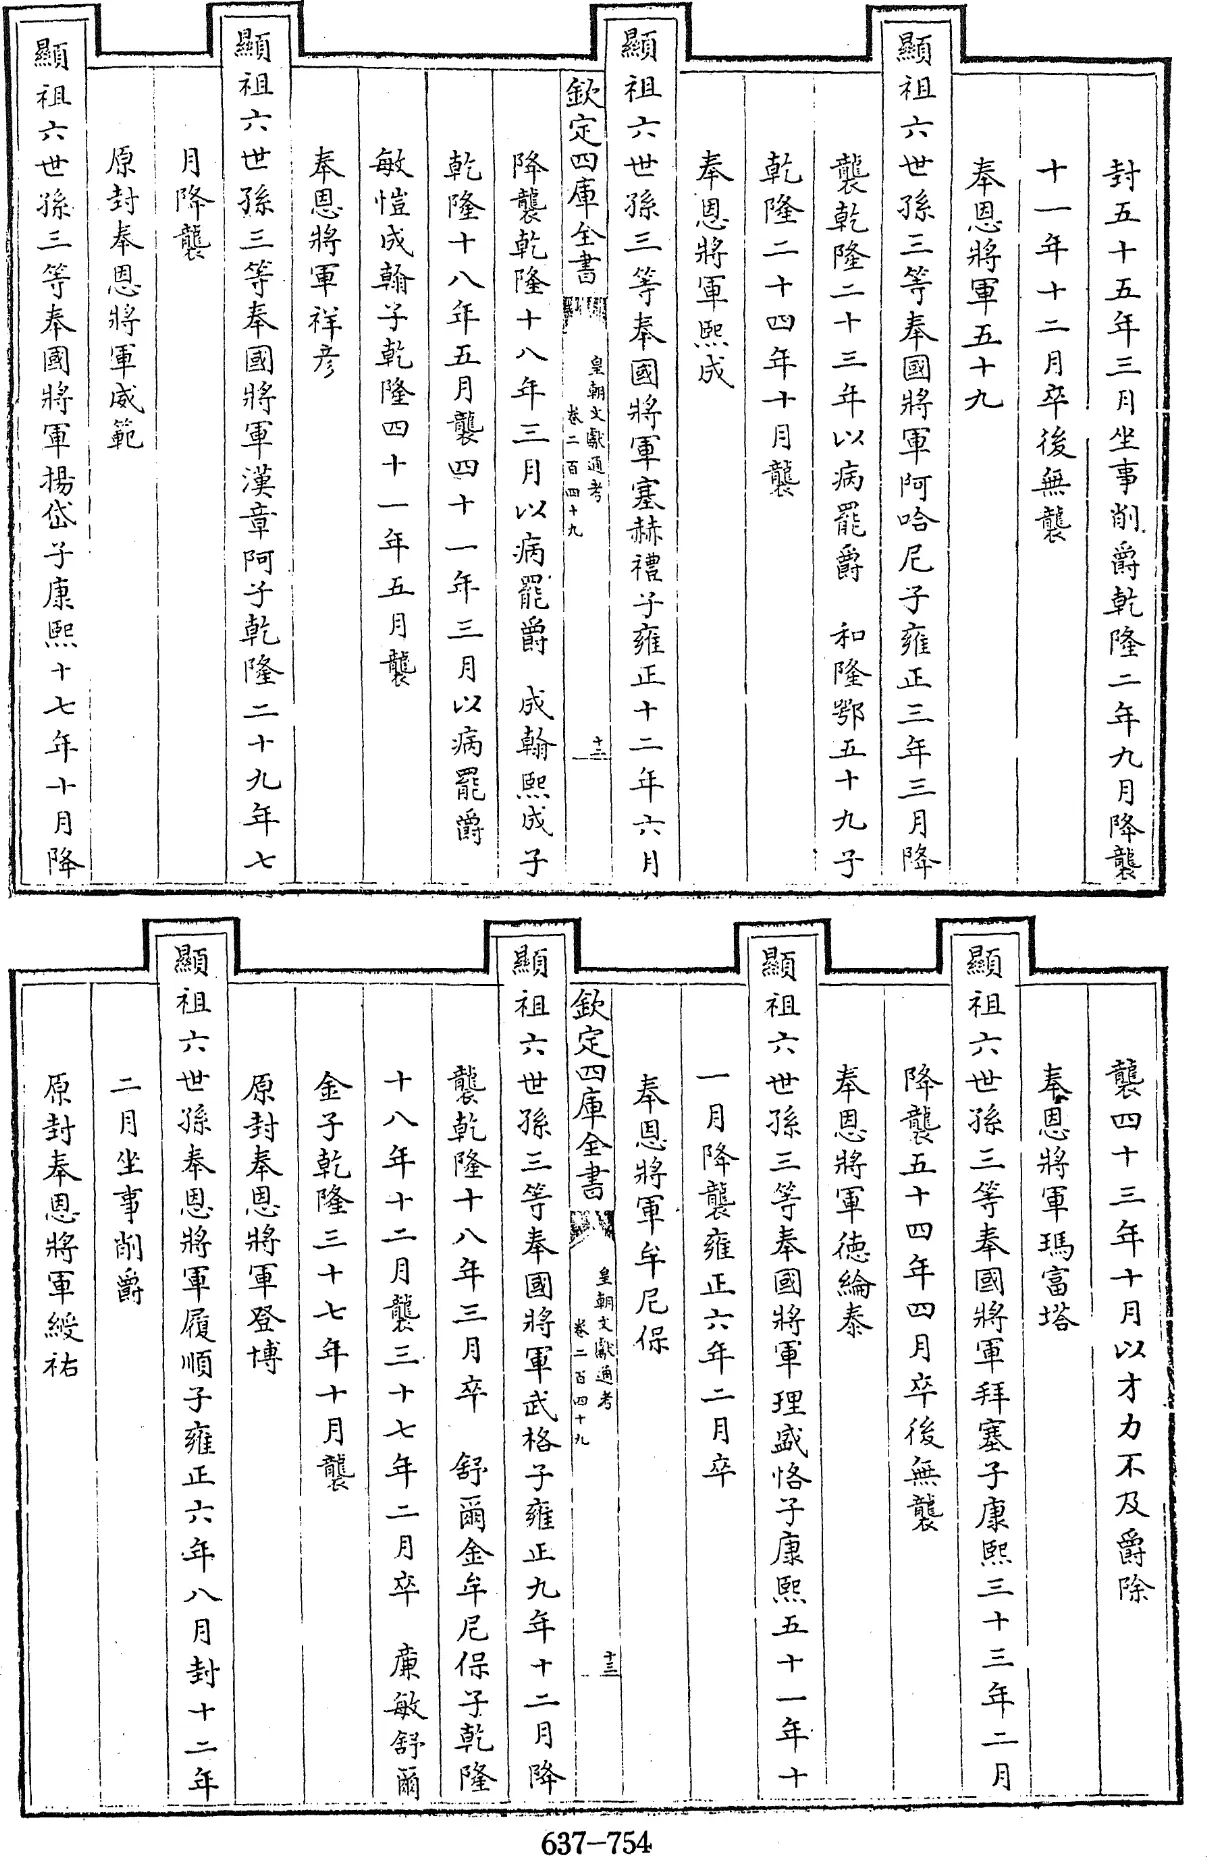 封五十五年三月坐事削爵乾隆二年九月降襲
十一年十二月卒後無襲
奉恩將軍五十九
顯祖六世孫三等奉國將軍阿哈尼子雍正三年三月降
襲乾隆二十三年以病罷爵 和隆鄂五十九子
乾隆二十四年十月襲
奉恩將軍熙成
顯祖六世孫三等奉國將軍塞赫禮子雍正十二年六月
欽定四庫全書 皇朝文獻通考 卷二百四十九 十二
降襲乾隆十八年三月以病罷爵 成翰熙成子
乾隆十八年五月襲四十一年三月以病罷爵
敏愷成翰子乾隆四十一年五月襲
奉恩將軍祥彥
顯祖六世孫三等奉國將軍漢章阿子乾隆二十九年七
月降襲
原封奉恩將軍威範
顯祖六世孫三等奉國將軍揚岱子康熙十七年十月降
襲四十三年十月以才力不及爵除
奉恩將軍瑪富塔
顯祖六世孫三等奉國將軍拜塞子康熙三十三年二月
降襲五十四年四月卒後無襲
奉恩將軍德綸泰
顯祖六世孫三等奉國將軍理盛恪子康熙五十一年十
一月降襲雍正六年二月卒
奉恩將軍牟尼保
欽定四庫全書 皇朝文獻通考 卷二百四十九 十三
顯祖六世孫三等奉國將軍武格子雍正九年十二月降
襲乾隆十八年三月卒 舒爾金牟尼保子乾隆
十八年十二月襲三十七年二月卒 廉敏舒爾
金子乾隆三十七年十月襲
原封奉恩將軍登博
顯祖六世孫奉恩將軍履順子雍正六年八月封十二年
二月坐事削爵
原封奉恩將軍綬祐
637-754